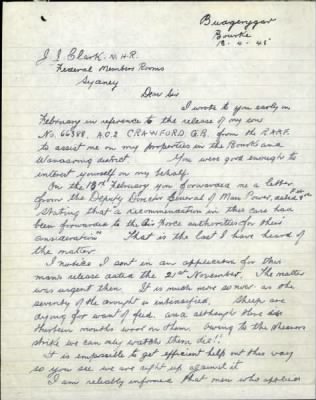 Bourke
J J Clark. M.H.R.
Federal Members Rooms
Sydney
Dear Sir
I wrote to you early in
February in reference to the release of my son
No. 66388. A.C.2 CRAWFORD G.B. from the R.A.A.F.
to assist me on my properties in the Bourke and
Wanaaring district. You were good enough to
interest yourself on my behalf.
On the 13th February you forwarded me a letter
from the Deputy Director General of Man Power, dated
Stating that a recommendation in this case had
been forwarded to the Air Force authorities for their
consideration" That is the last I have heard of
the matter.
I notice I sent in an application for this
man's release dated the 21st November. The matter
was urgent then. It is much more so now. as the
severity of the drought is intensified. Sheep are
dying for want of feed. and although there is
thirteen months wool on them. Owing to the shearers
strike we can only watch them die!!
It is impossible to get efficient help out this way
so you see we are right up against it
I am reliably informed that men who applied